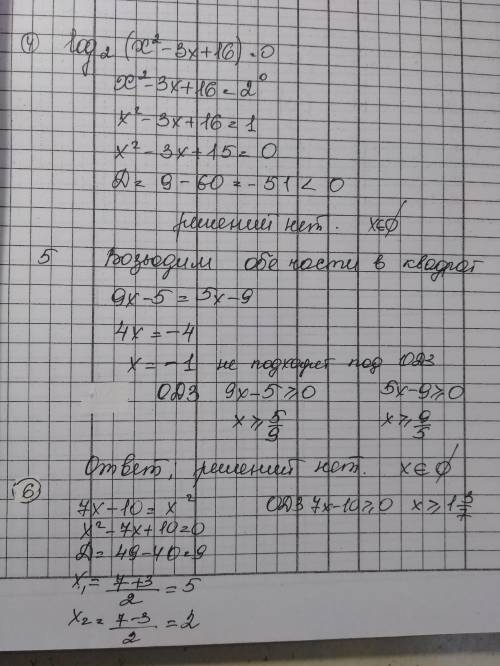 ④ log₂ (x² - 3x + 16) = 0
x² - 3x + 16 = 2⁰
x² - 3x + 16 = 1
x² - 3x + 15 = 0
D = 9 - 60 = - 51 < 0
решений нет. x ∈ ∅
5 Возводим обе части в квадрат
9x - 5 = 5x - 9
4x = - 4
x = - 1 не подходит под ОДЗ
ОДЗ 9x - 5 ≥ 0 5x - 9 ≥ 0
x ≥ 5/9 x ≥ 9/5
Ответ; решений нет. x ∈ ∅
⑥ 7x - 10 = x² ОДЗ 7x - 10 ≥ 0 x ≥ 1 3/7
x² - 7x + 10 = 0
D = 49 - 40 = 9
x₁ = (7 + 3)/2 = 5
x₂ = (7 - 3)/2 = 2